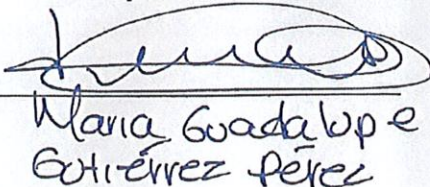 Maria Guadalupe
Gutiérrez Pérez